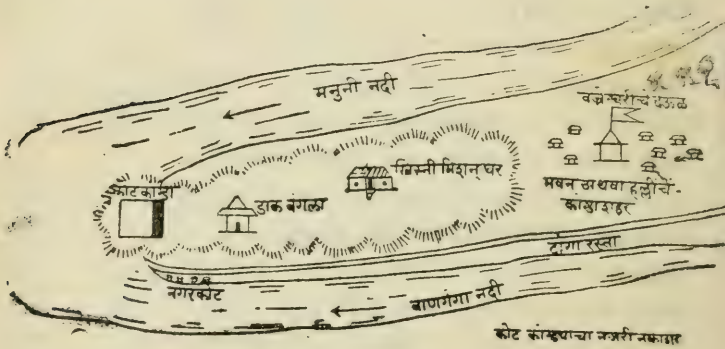 मनुनी नदी
वज्रेश्वरीचें देऊळ
कोट कांग्डा
डाक बंगला
ख्रिस्ती मिशन् घर
भवन अथवा हल्लींचें
कांग्डा शहर
टांगा रस्ता
नगरकोट
बाणगंगा नदी
कोट कांग्ड्याचा नजरी नकाशा